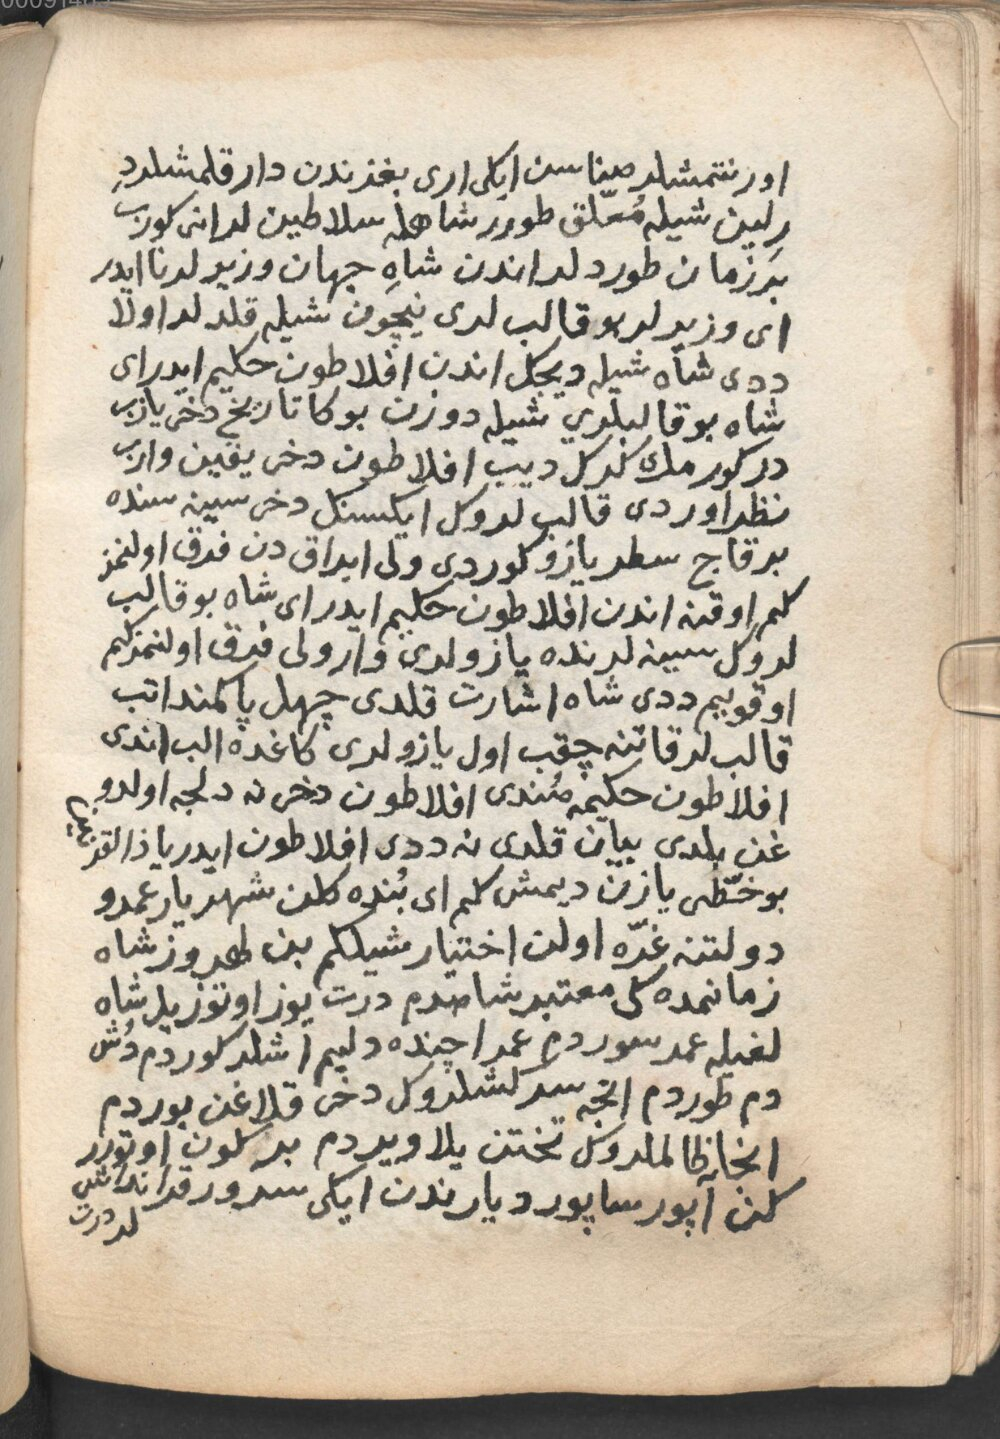 اورنتمشلر صیناسن ایکی اری بغزندن دار قلمشلرد
رلین شیله مُعلّق طورر شاهله سلاطین لرانی کورب
بر زمان طوردلر اندن شاهِ جهان وزیرلرنا ایدر
ای وزیرلر بو قالب لری نیچون شیله قلدلر اولا
ددی شاه شیله دیجکل اندن افلاطون حکیم ایدر ای
شاه بو قالبلری شیله دوزن بوکا تاریخ دخی یازب
در کورمك کرکل دیب افلاطون دخی یقین وارب
نظر اوردی قالب لروکل ایکسنکل دخی سینه سنده
بر قاچ سطر یازو کوردی ولی ایراق دن فرق اولنمز
کلم اوقنه اندن افلاطون حکیم ایدر ای شاه بو قالب
لروکل سینه لرنده یازولری وار ولی فرق اولنمز کلم
اوقوییم ددی شاه اشارت قلدی چهل پا کمند اتب
قالب لر قاتنه چقب اول یازولری کاغده الب اندی
افلاطون حکیمه صُندی افلاطون دخی نه دلجه اولدو
غن بلدی بیان قلدی نه ددی افلاطون ایدر یا ذالقرنین
بو خطّی یازن دیمش کلم ای بُنده کلن شهریار عمرو
دولتنه غرّه اولن اختیار شیلکم بن طهروز شاه
زمانمده کی معتبر شاهدم درت یوز اوتوز ییل شاه
لغیله عمر سوردم عمر اچنده دلیم اشلر کوردم دُش
دم طوردم انجه سرکشلروکل دخی قلاغن بوردم
انجا ظالملروکل تختن یلا ویردم بر کون اوتورر
کن اپور ساپور دیارندن ایکی سرور قرانداشی
لر درت